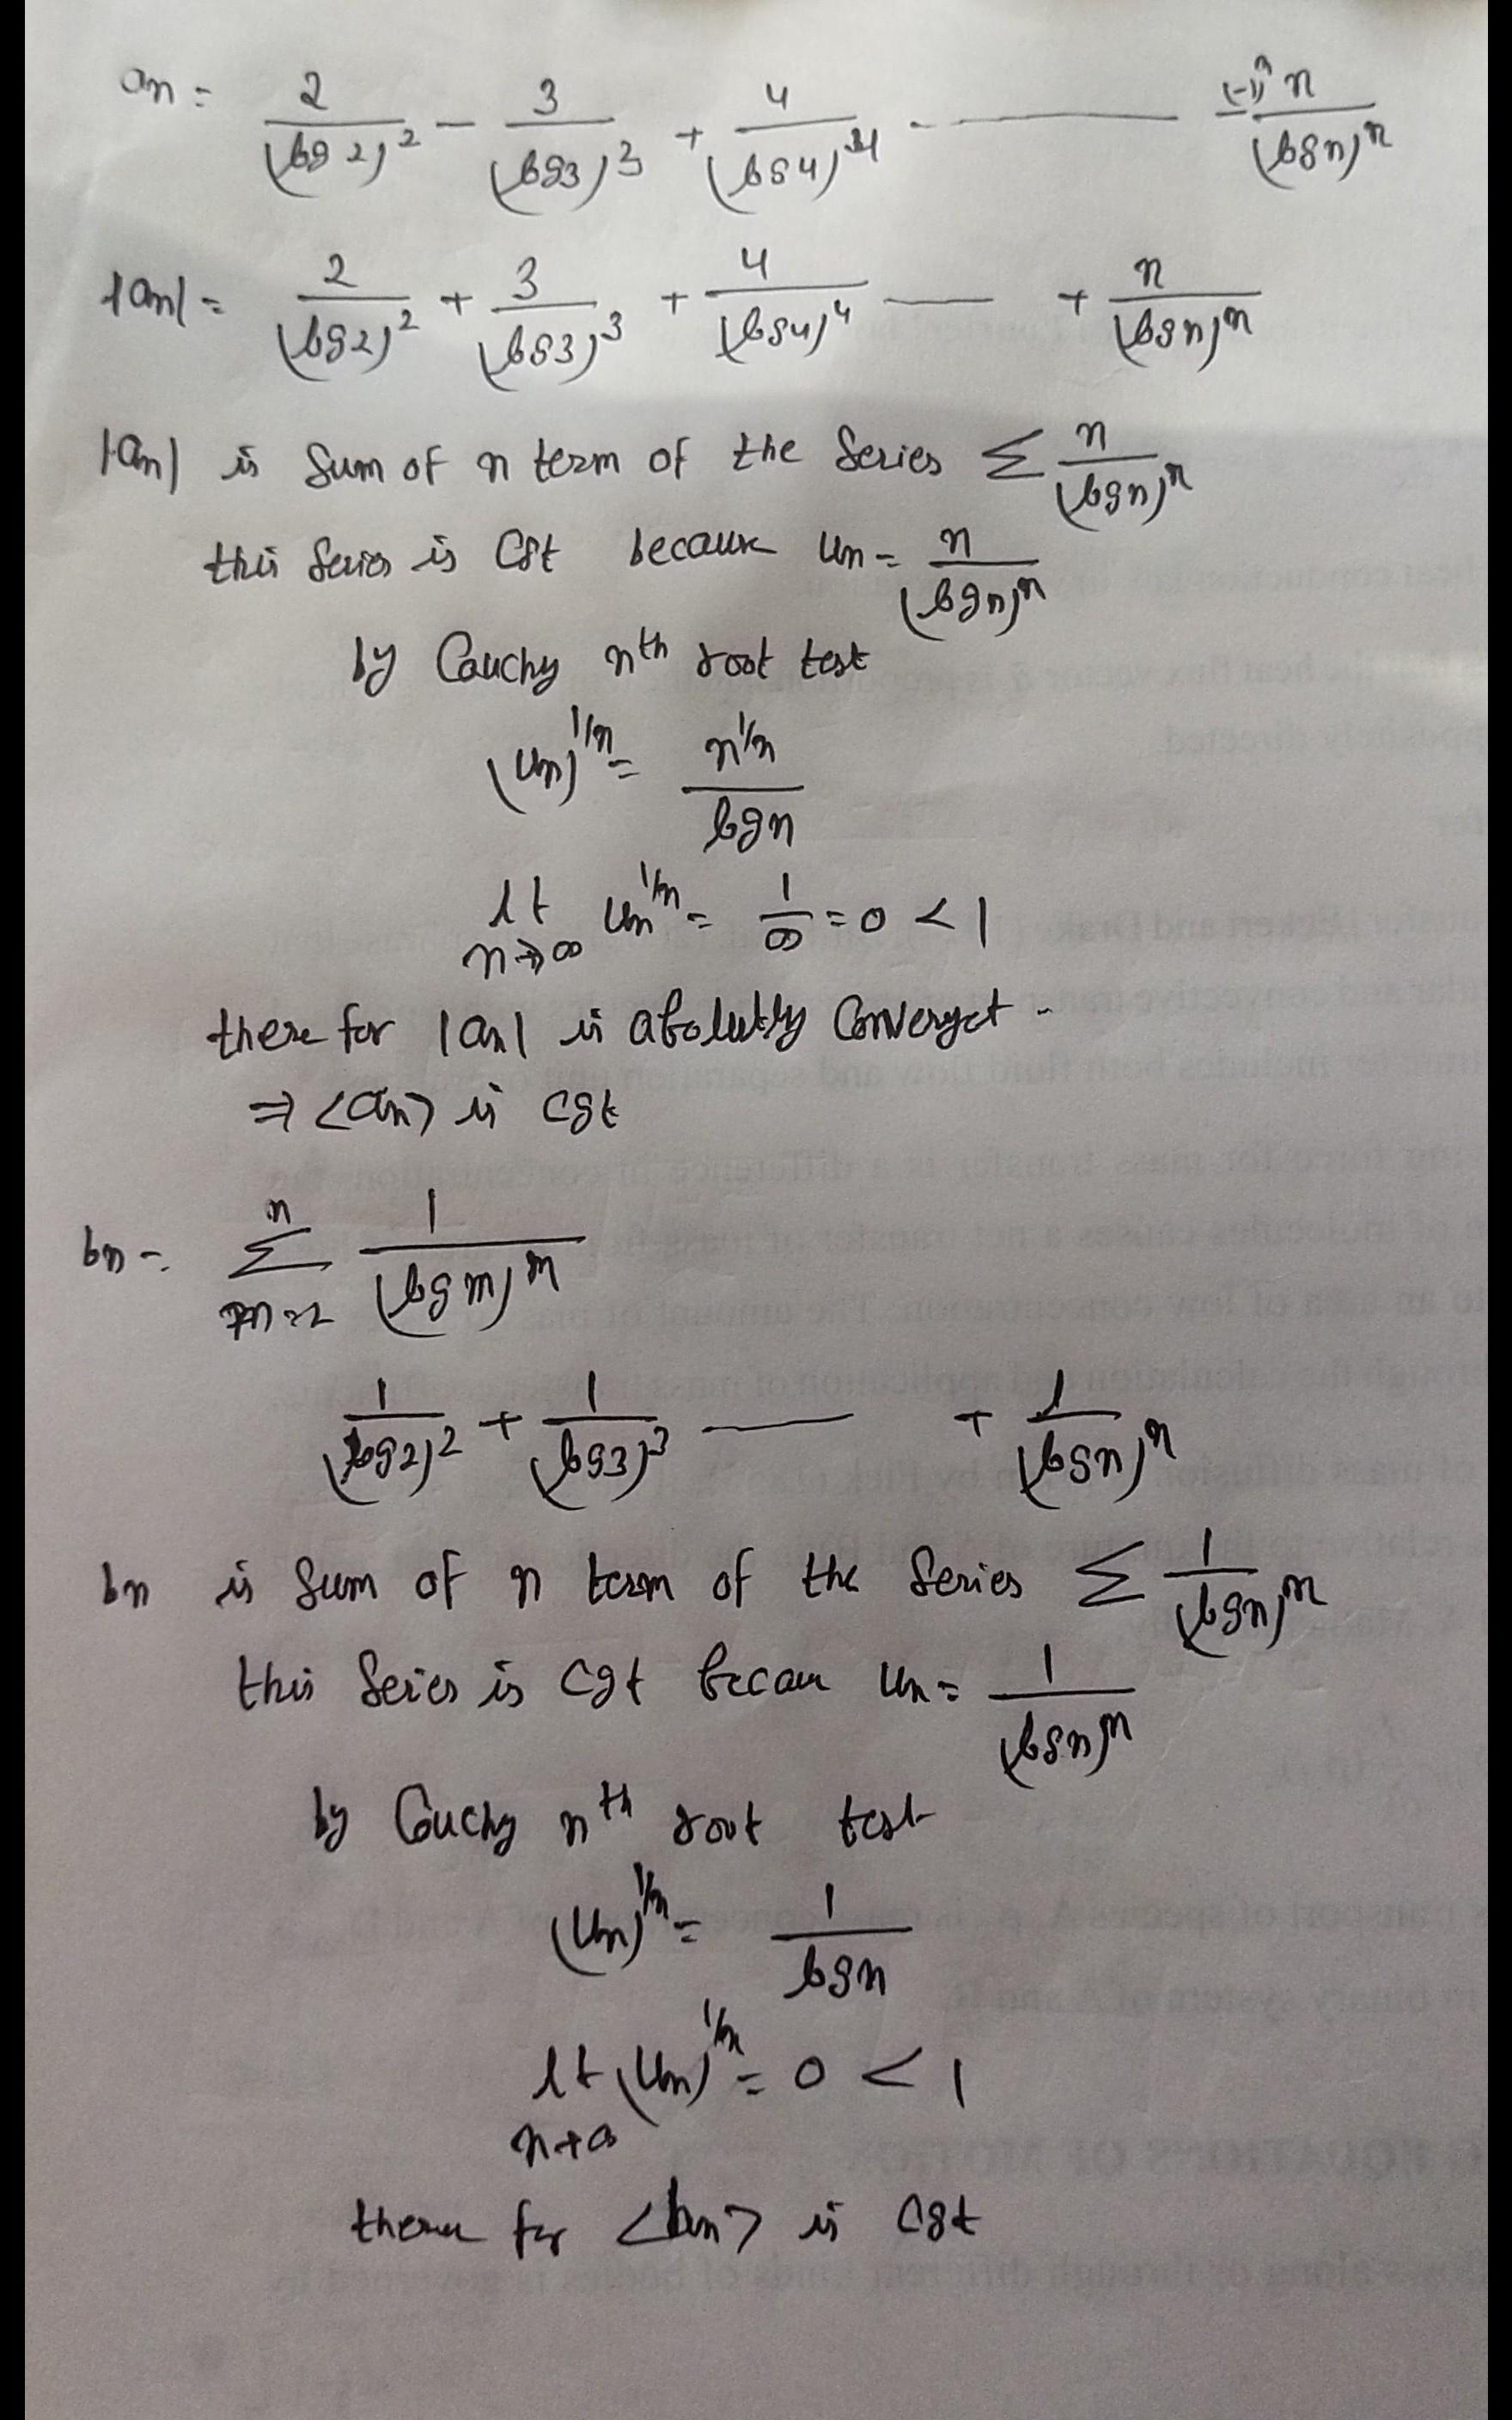 an = 2/(log 2)^2 - 3/(log 3)^3 + 4/(log 4)^4 - ——— (-1)^n n/(log n)^n
|an| = 2/(log 2)^2 + 3/(log 3)^3 + 4/(log 4)^4 ——— + n/(log n)^n
|an| is Sum of n term of the Series Σ n/(log n)^n
this Series is Cgt because un = n/(log n)^n
by Cauchy nth root test
(un)^1/n = n^1/n / log n
lt n→∞ un^1/n = 1/∞ = 0 < 1
there for |an| is absolutly Convergct -
⇒ <an> is cgt
bn = Σ^n m=2 1/(log m)^m
1/(log 2)^2 + 1/(log 3)^3 ——— + 1/(log n)^n
bn is Sum of n term of the Series Σ 1/(log n)^n
this Series is Cgt becau un = 1/(log n)^n
by Cauchy nth root test
(un)^1/n = 1/log n
lt n→∞ (un)^1/n = 0 < 1
there for <bn> is Cgt